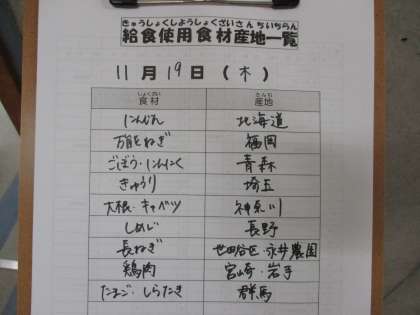 きゅうしょくしようしょくざいさんちいちらん
給食使用食材産地一覧
11月19日(木)
しょくざい さんち
食材 産地
にんじん 北海道
万能ねぎ 福岡
ごぼう・にんにく 青森
きゅうり 埼玉
大根・キャベツ 神奈川
しめじ 長野
長ねぎ 世田谷区・永井農園
鶏肉 宮崎・岩手
たまご・しらたき 群馬